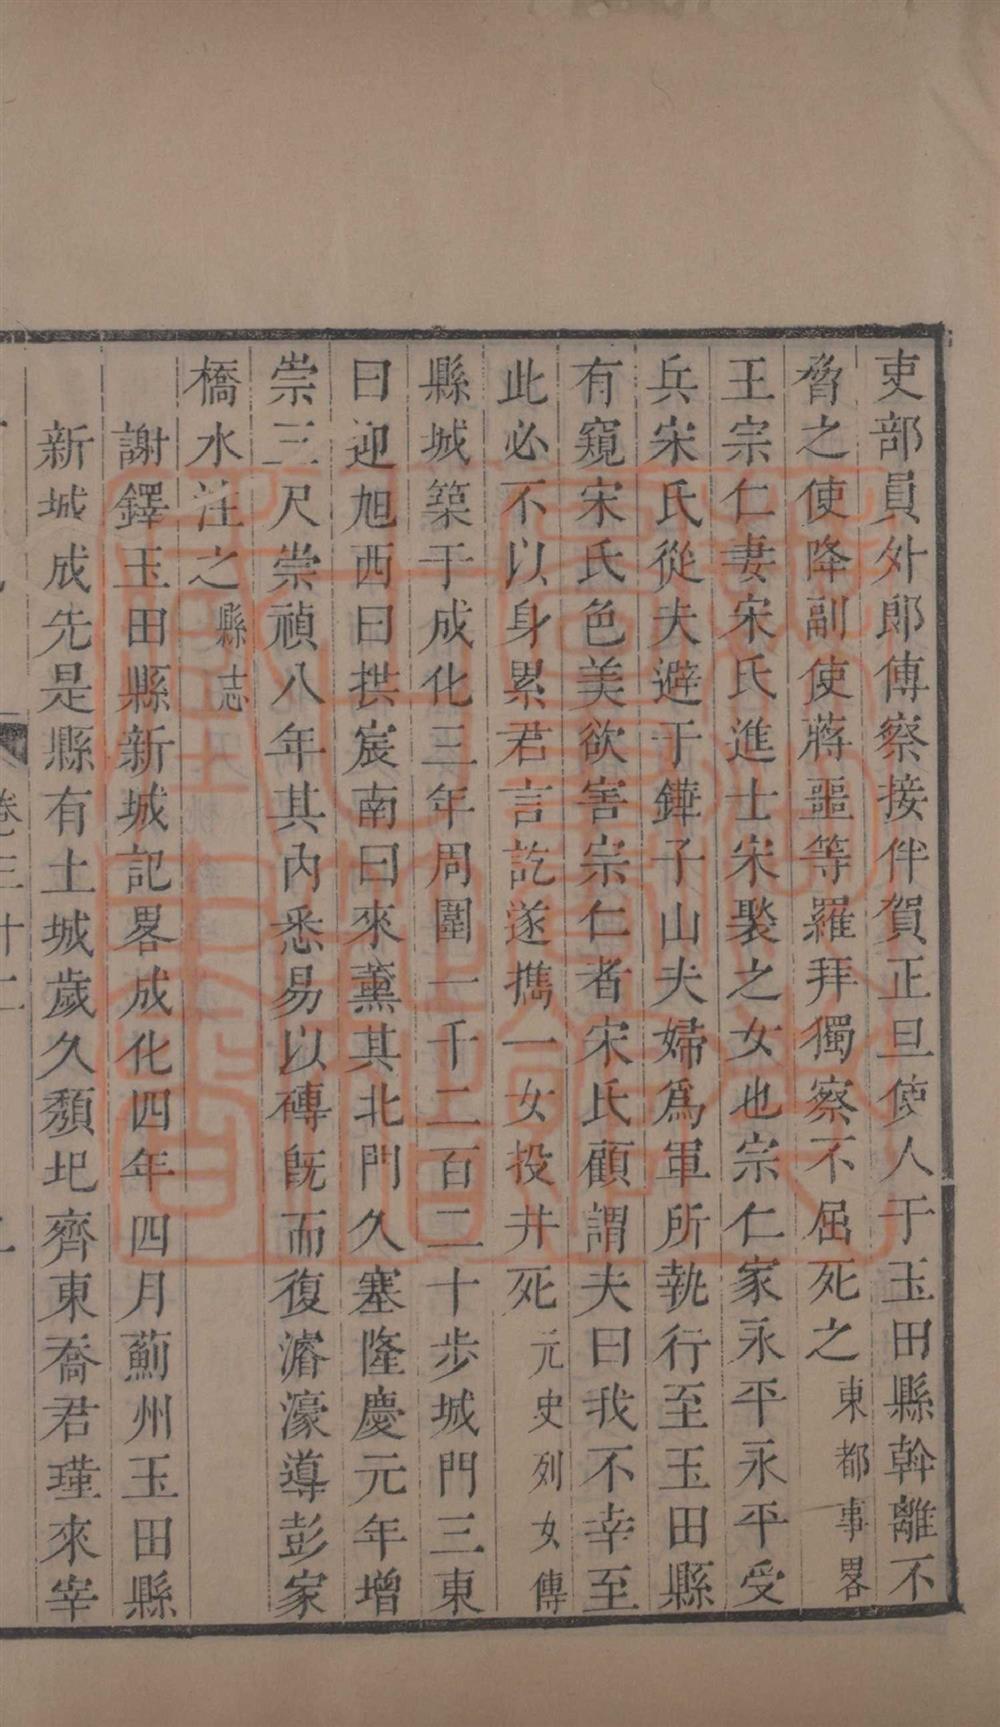 吏部員外郎傅察接伴賀正旦使人于玉田縣幹離不
脅之使降副使蔣噩等羅拜獨察不屈死之東都事畧
王宗仁妻宋氏進士宋褧之女也宗仁家永平永平受
兵宋氏從夫避于鏵子山夫婦爲軍所執行至玉田縣
有窺宋氏色美欲害宗仁者宋氏顧謂夫曰我不幸至
此必不以身累君言訖遂攜一女投井死元史列女傳
縣城築于成化三年周圍一千二百二十步城門三東
曰迎旭西曰拱宸南曰來薰其北門久塞隆慶元年增
崇三尺崇禎八年其內悉易以磚旣而復濬濠導彭家
橋水注之縣志
謝鐸玉田縣新城記畧成化四年四月薊州玉田縣
新城成先是縣有土城歲久頽圮齊東喬君瑾來宰
卷三十二